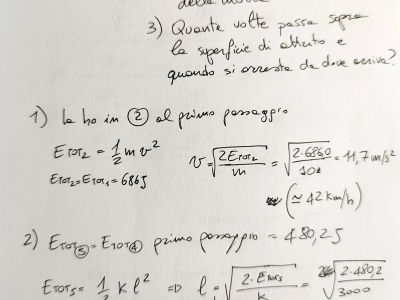 della molla
3) Quante volte passa sopra
la superficie di attrito e
quando si arresta da dove arriva?
1) la ho in ② al primo passaggio
ETOT2 = 1/2 m v² v = √(2ETOT2/m) = √(2·6860/10) = 11,7 m/s²
ETOT2 = ETOT1 = 686J
(≃ 42 km/h)
2) ETOT③ = ETOT④ primo passaggio = 480,2J
ETOT5 = 1/2 K l² => l = √(2·ETOT5/K) = √(2·480,2/3000)